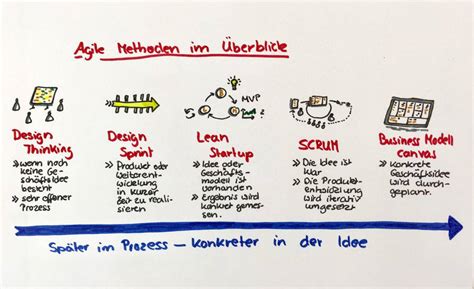 Agile Methoden im Überblick
MVP
Design
Thinking
» wenn noch
keine Ge-
schäftsidee
besteht
» sehr offener
Prozess
Design
Sprint
» Produkt oder
Weiterent-
wicklung
in kurzer
Zeit zu reali-
sieren
Lean
Startup
» Idee oder
Geschäfts-
modell ist
vorhanden
» Ergebnis wird
konkret gemes-
sen.
SCRUM
» Die Idee ist
klar
» Die Produkt-
entwicklung
wird iterativ
umgesetzt
Business Modell
canvas
» konkrete
Geschäftsidee
wird durch-
geplant.
Später im Prozess – konkreter in der Idee